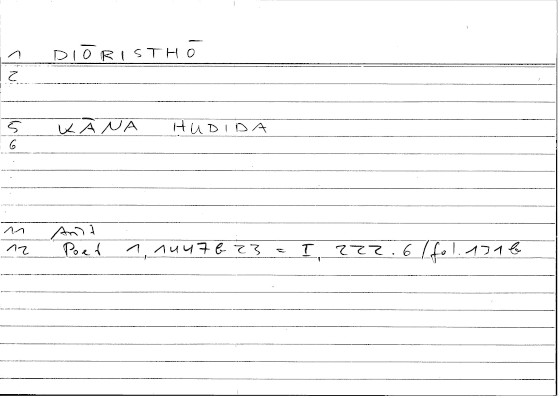 1 DIŌRISTHŌ
2
5 KĀNA HUDIDA
6
11 Arist
12 Poet 1, 1447b23 = I, 222.6/fol.131b